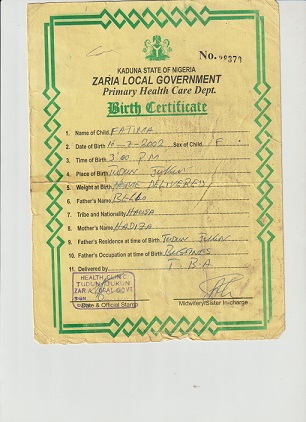 No. 08379
KADUNA STATE OF NIGERIA
ZARIA LOCAL GOVERNMENT
Primary Health Care Dept.
Birth Certificate
1. Name of Child. FATIMA
2. Date of Birth 11-7-2002 Sex of Child F.
3. Time of Birth 3.00 PM
4. Place of Birth TUDUN JUKUN
5. Weight at Birth HOME DELIVERED
6. Father's Name BELLO
7. Tribe and Nationality HAUSA
8. Mother's Name HADIZA
9. Father's Residence at time of Birth TUDUN JUKUN
10. Father's Occupation at time of Birth BUSSINES
11. Delivered by T.B.A
HEALTH CLINIC
TUDUN JUKUN
ZARIA LOCAL GOVT
Date & Official Stamp
Midwifery/Sister In-charge